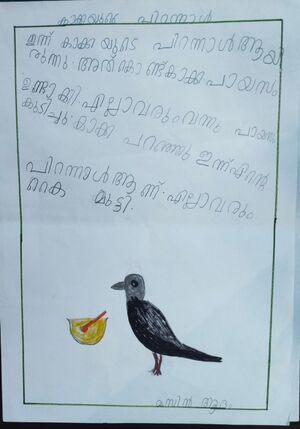 കാക്കയുടെ പിറന്നാൾ
ഇന്ന് കാക്ക യുടെ പിറന്നാൾ ആയി
രുന്നു. അത്കൊണ്ട് കാക്ക പായസം
ഉണ്ടാക്കി. എല്ലാവരും വന്നു പായസം
കുടിച്ചു. കാക്ക പറഞ്ഞു ഇന്ന് എന്റെ
പിറന്നാൾ ആണ്. എല്ലാവരും
കൈ മുട്ടി.